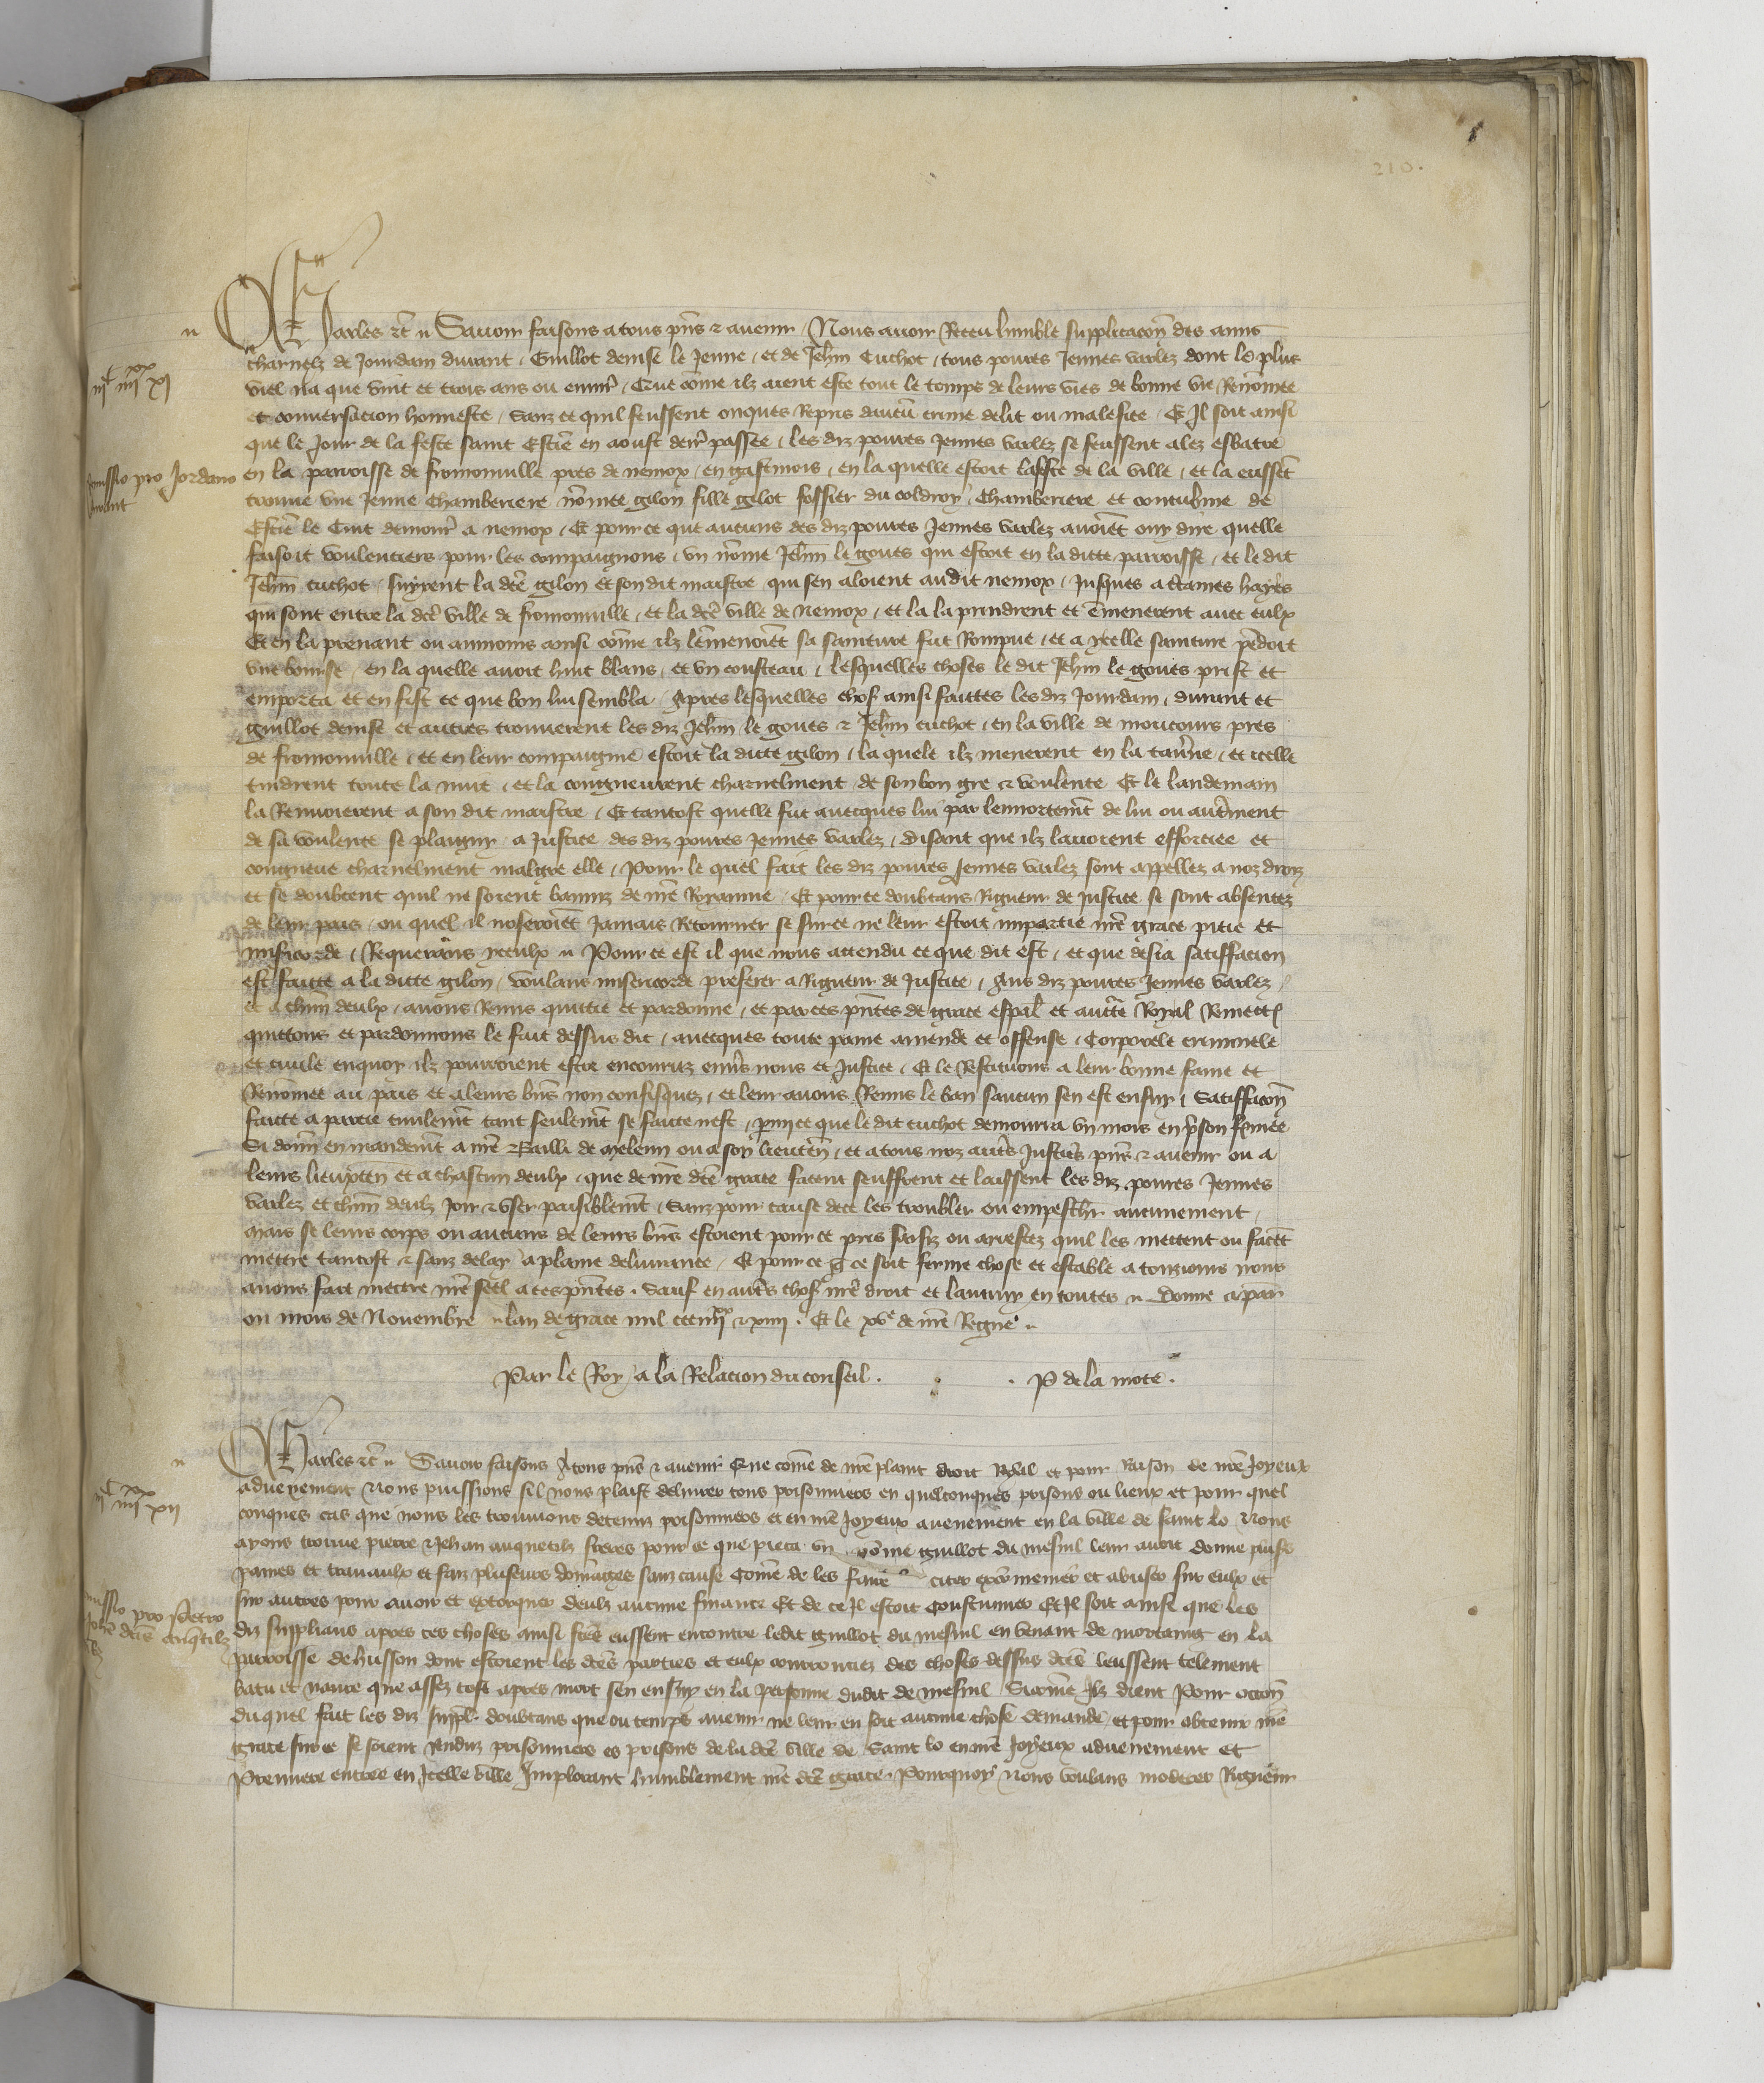 210.
Charles etc̃ Savoir faisons a tous pñs & avenir Nous avoir Receu humble supplicacoñ des amis
charnelz de Jourdain durant, Guillot denise le Jenne, et de Jehñ Cuchot, tous povres Jennes varlez dont le plus
viel na que vint et trois ans ou envirõ, Que cõme ilz aient este tout le temps de leurs vies de bonne vie Renõmee
et conversacion honneste, sanz ce quil feussent onques Repris daucũ crime delit ou malefice. Et Il soit ainsi
que le Jour de la feste saint Estiẽ en aoust derr̃ passee, les diz povres Jennes varlez se feussent alez esbatre
iijᶜ iiijˣˣ xj
en la parroisse de fromonville pres de nemox, en gastinois, en la quelle estoit la feste de la ville, et la eussẽt
Remissio pro Jordano durant
trouve une Jenne Chamberiere nõmee gilon fille gilot fossier du coldroy, Chamberiere et concubine de
Estiẽ le Cuit demour̃ a nemox, Et pour ce que aucuns des diz povres Jennes varlez avoiẽt oy dire quelle
faisoit voulentiers pour les compaignons, un nõme Jehñ le goues qui estoit en la dicte parroisse, et le dit
Jehñ cuchot, suyrent la dcẽ gilon et son dit maistre qui sen aloient audit nemox, Jusques a certaines hayes
qui sont entre la dcẽ ville de fromonville, et la dcẽ ville de Nemox, et la la prindrent et ẽmenerent avec eulx
Et en la prenant ou aumoins ainsi cõme ilz lẽmenoiẽt sa sainture fut Rompue, et a ycelle sainture pẽdoit
une bourse, en la quelle avoit huit blans, et un cousteau, lesquelles choses le dit Jehñ le goues prist et
emporta et en fist ce que bon lui sembla. Apres lesquelles chos̃ ainsi faictes les diz Jourdain, durant et
guillot denise et autres trouverent les diz Jehñ le goues & Jehñ cuchot, en la ville de moncours pres
de fromonville, et en leur compaignie estoit la dicte gilon, la quele ilz menerent en la tav̾ne, et icelle
tindrent toute la nuit, et la congneurent charnelment de son bon gre & voulente. Et le landemain
la Renvoierent a son dit maistre, Et tantost quelle fut avecques lui par lennortemẽt de lui ou autr̃ment
de sa voulente se plaigny a Justice des diz povres Jennes varlez, disant que ilz lavoient efforciee et
congneue charnelment malgre elle, Pour le quel fait les diz povres Jennes varlez sont appellez a noz droiz
et se doubtent quil ne soient banniz de nr̃e Royaume. Et pour ce doubtans Rigueur de Justice se sont absentez
de leur pais, ou quel il noseroiẽt Jamais Retourner se sur ce ne leur estoit impartie nr̃e grace pitie et
misericorde, Requerans yceulx Pour ce est il que nous attendu ce que dit est, et que desia satisfacion
est faicte a la dicte gilon, voulans misericorde preferer a Rigueur de Justice, Aus diz povres Jennes varlez,
et a chũn deulx, avons Remis quictie et pardonne, et par ces pñtes de grace espal̃ et auctẽ Royal Remettõs
quictons et pardonnons le fait dessus dit, avecques toute paine amende et offense, Corporele criminele
et civile enquoy ilz pourroient estre encouruz env̾s nous et Justice, Et le Restituons a leur bonne fame et
Renõmee au pais et a leurs biẽs non confisquez, et leur avons Remis le ban saucun sen est ensuy, Satisfacõn
faicte a partie civilemẽt tant seulemẽt se faicte nest, parmy ce que le dit cuchot demourra un mois en p̃son fermee
Si donñ en mandemẽt a nr̃e Bailli de Meleun ou a son lieuteñ, et a tous noz autr̃s Justicr̃s pñs & avenir ou a
leurs lieuxteñ et a chascun deulx, que de nr̃e dcẽ grace facent seuffrent et laissent les diz povres Jennes
varlez et chũn deulz Joir & user paisiblemẽt, Sanz pour cause de ce les troubler ou empeschr̃ aucunement,
Mais se leurs corps ou aucuns de leurs biẽs estoient pour ce pris saisiz ou arrestez quil les mettent ou facẽt
mettre tantost & sanz delay a plaine delivrance. Et pour ce q̃ ce soit ferme chose et estable a tousiours nous
avons fait mettre nr̃e seel a ces pñtes. Sauf en autr̃s chos̃ nr̃e droit et lautruy en toutes. Donne a paris
ou mois de Novembre lan de grace mil ccciiijˣˣ & xiiij. Et le xvᵉ de nr̃e Regne.
Par le Roy a la Relacion du conseil. P de la mote.
Charles etc̃ Savoir faisons A tous pñs & avenir Que cõme de nr̃e plain droit Royal et pour Raison de nr̃e Joyeux
advenement Nous puissions sil nous plaist delivrer tous prisonniers en quelconques prisons ou lieux et pour quel
iijᶜ iiijˣˣ xij
conques cas que nous les trouvions detenuz prisonniers et en nr̃e Joyeux avenement en la ville de saint lo Nous
ayons trouve pierre & Jehan auquetilz freres pour ce que pieca un nõme guillot du mesnil leur avoit donne
paines et travaulx et faiz plusieurs dõmages sanz cause Cõme de les faire citer excõmenier et abuser sur eulx et
sur autres pour avoir et extorquer deulz aucune finance Et de ce Il estoit coustumier Et Il soit ainsi que les
Remissio pro Petro Johẽ dcĩs Auq̃tilz
diz supplians apres ces choses ainsi fcẽs eussent encontre ledit guillot du mesnil en venant de mortaing en la
parroisse de husson dont estoient les dcẽs parties et eulx courrouciez des choses dessus dcẽs leussent telement
batu et navre que assez tost apres mort sen ensuy en la personne dudit du mesnil Sicomẽ Ilz dient Pour occoñ
duquel fait les diz suppl̃ doubtans que ou temps avenir ne leur en soit aucune chose demande et pour obtenir nr̃e
grace sur ce se soient renduz prisonniers es prisons de la dcẽ ville de Saint lo en nr̃e Joyeux advenement et
Premiere entree en Icelle ville Implorant humblement nr̃e dcẽ grace. Pourquoy Nous voulans moderer Rigueur